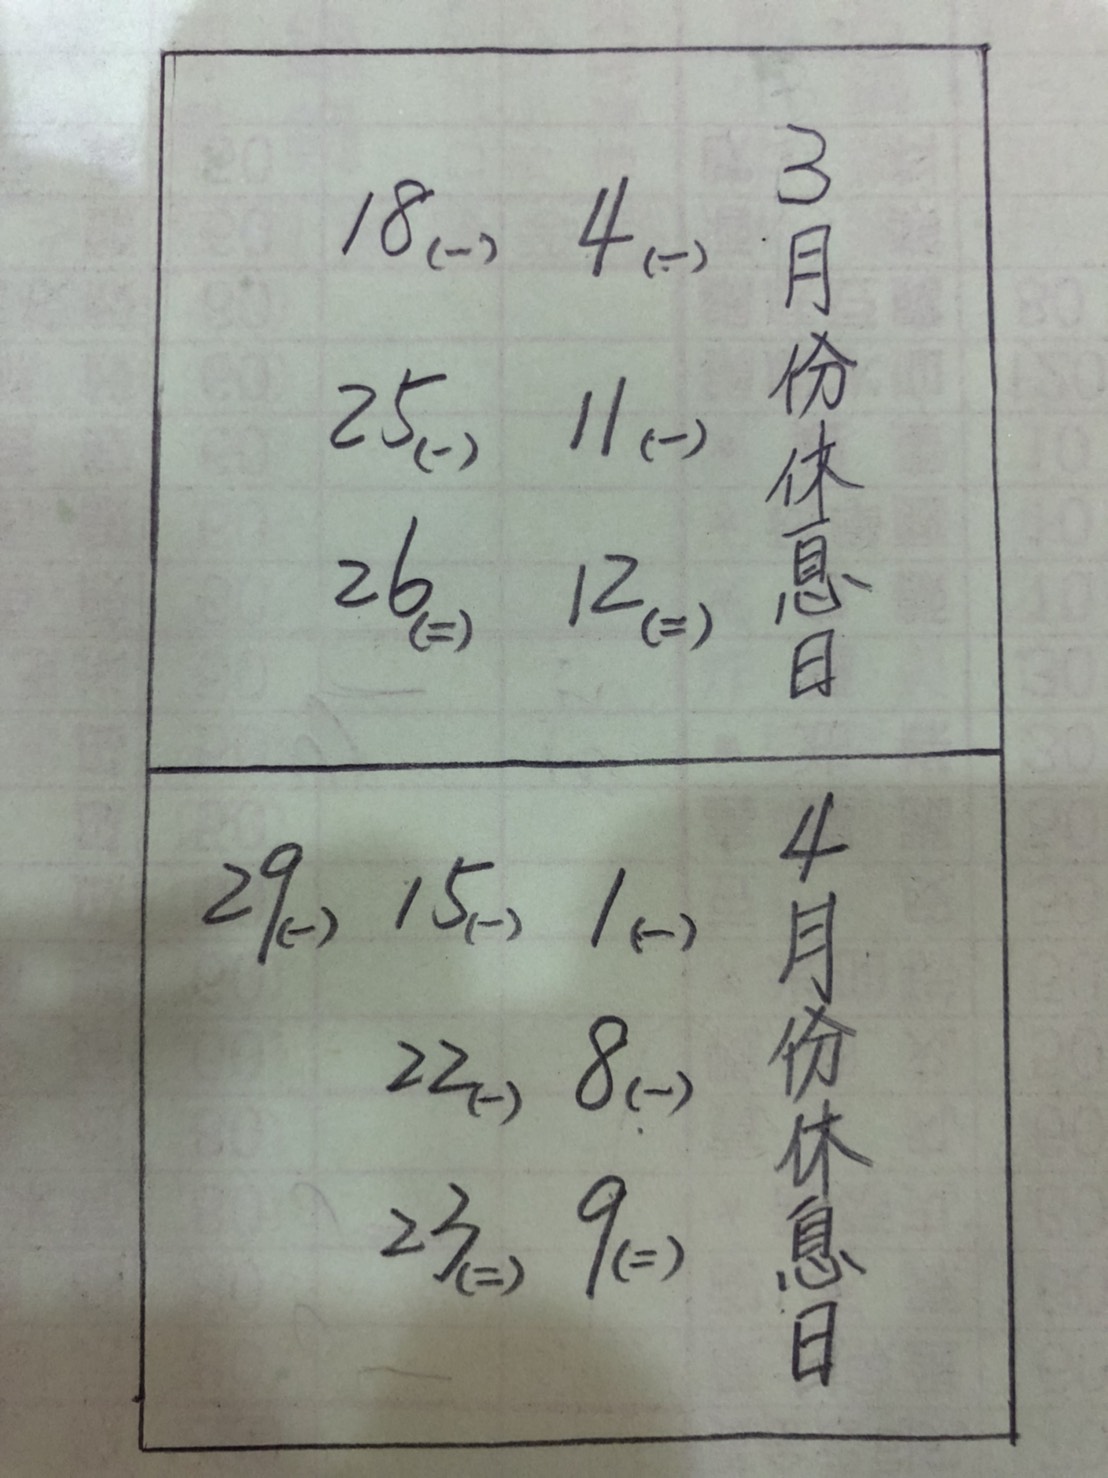 3月份休息日
4(一)
11(一)
12(二)
18(一)
25(一)
26(二)
4月份休息日
1(一)
8(一)
9(二)
15(一)
22(一)
23(二)
29(一)